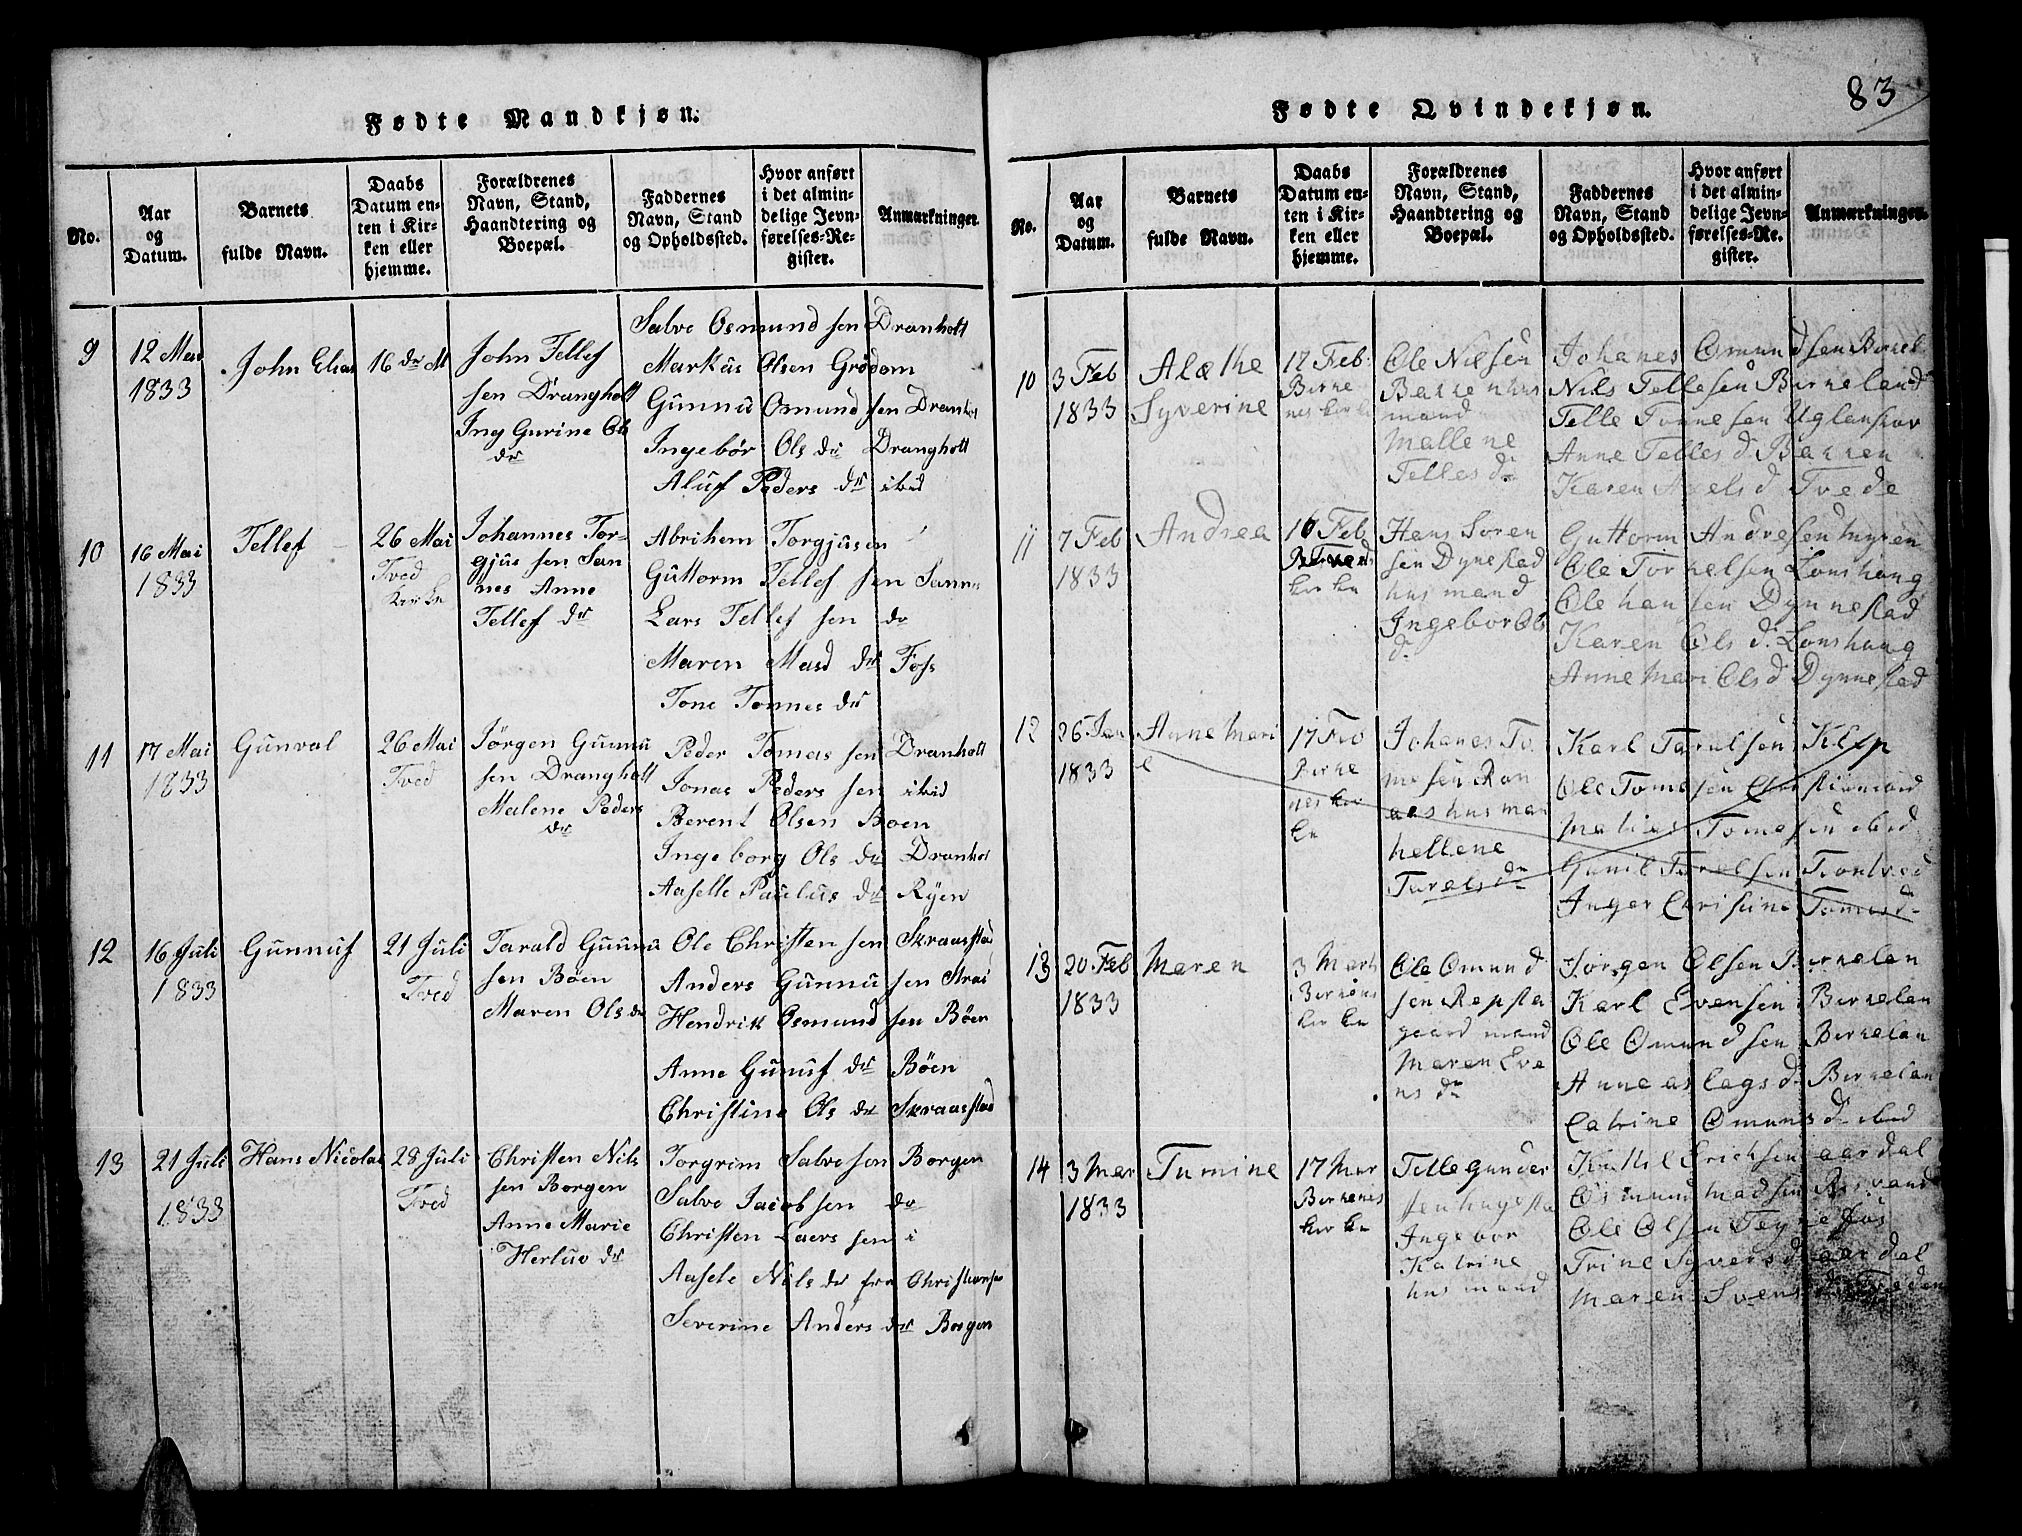 83
Fødte Mandkjøn.
No.
Aar og Datum.
Barnets fulde Navn.
Daabs Datum enten i Kirken eller hjemme.
Forældrenes Navn, Stand, Haandtering og Boepæl.
Faddernes Navn, Stand og Opholdssted.
Hvor anført i det almindelige Jevnførelses-Register.
Anmærkninger.
9
12 Mai
1833
John Elias
16 dr M
John Tellef
sen Drangholt
Ing Gurine Ols
dr
Salve Osmund sen Dranholt
Markus Olsen Grødom
Gunnu Omund sen Dranholt
Ingebør Ols dr Drangholt
Aluf Peders dr ibid
10
16 Mai
1833
Tellef
26 Mai
Tved
Kirke
Johannes Tor-
gjus sen San
nes Anne
Tellef dr
Abrihem Torgjusen
Guttorm Tellef sen Sannes
Lars Tellef sen do
Maren Masd dr Foss
Tone Tonnes dr
11
17 Mai
1833
Gunval
26 Mai
Tved
Jørgen Gunnu
sen Drangholt
Malene Peders
dr
Peder Tomas sen Dranholt
Jonas Peders sen ibid
Berent Olsen Boen
Ingeborg Ols dr Dranhol
Aaselle Paulus dr Ryen
12
16 Juli
1833
Gunnuf
21 Juli
Tved
Tarald Gunnu
sen Bøen
Maren Ols dr
Ole Christen sen Skraastad
Anders Gunnu sen Strai
Hendrik Osmund sen Bøen
Anne Gunuf dr Bøen
Christine Ols dr Skraastad
13
21 Juli
1833
Hans Nicolai
28 Juli
Tved
Christen Nils
sen Borgen
Anne Marie
Herluv dr
Torgrim Salvesen Borgen
Salve Jacobsen do
Christen Laers sen i
Aasele Nils dr fra Christiansa
Severine Anders dr Borgen
Fødte Qvindekjøn.
No.
Aar og Datum.
Barnets fulde Navn.
Daabs Datum enten i Kirken eller hjemme.
Forældrenes Navn, Stand, Haandtering og Boepæl.
Faddernes Navn, Stand og Opholdssted.
Hvor anført i det almindelige Jevnførelses-Register.
Anmærkninger.
10
3 Feb
1833
Alæthe
Syverine
17 Feb
Birke
nes kirke
Ole Nilsen
Bakken hus
mand
Mallene
Telles d
Johanes Omundsen Birkel
Nils Tellesen Birkeland
Telle Tonnesen Uglanskor
Anne Telles d Bakken
Karen Axels d Tvede
11
7 Feb
1833
Andrea
10 Feb
Tveds
kirke
Hans Søren
sen Dynestad
husmand
Ingebor Ols
d
Guttorm Andresen Myren
Ole Torkelsen Lonshaug
Ole hansen Dynnestad
Karen Ols d Lonshaug
Anne Mari Ols d Dynnestad
12
26 Jan
1833
Anne Mari
e
17 Feb
Birke
nes kir
ke
Johanes To
mesen Ran
aas husman
hellene
Tarels dr
Karl Tarulsen Klep
Ole Tomesen
Matias Tomesen ibid
Gunil Tarelsen Trontved
Anger Christine Tomesd
13
20 Feb
1833
Maren
3 Marts
Birkenes
kirke
Ole Omund
sen Repsta
gaard mand
Maren Eve
ns dr
Jørgen Olsen Birkelan
Karl Evensen Birkelan
Ole Omundsen Birkelan
Anne aslags d Birkelan
Catrine Omuns d ibid
14
3 Mar
1833
Tumine
17 Mar
Birkenes
kirke
Telle Gunder
sen hagesta
Ingebor
Katrine
husmand
Kittil Erichsen aardal
Osmund Madsen Røsvand
Ole Olsen Teyne
Trine Syvers d aardal
Maren Svens d Tveden